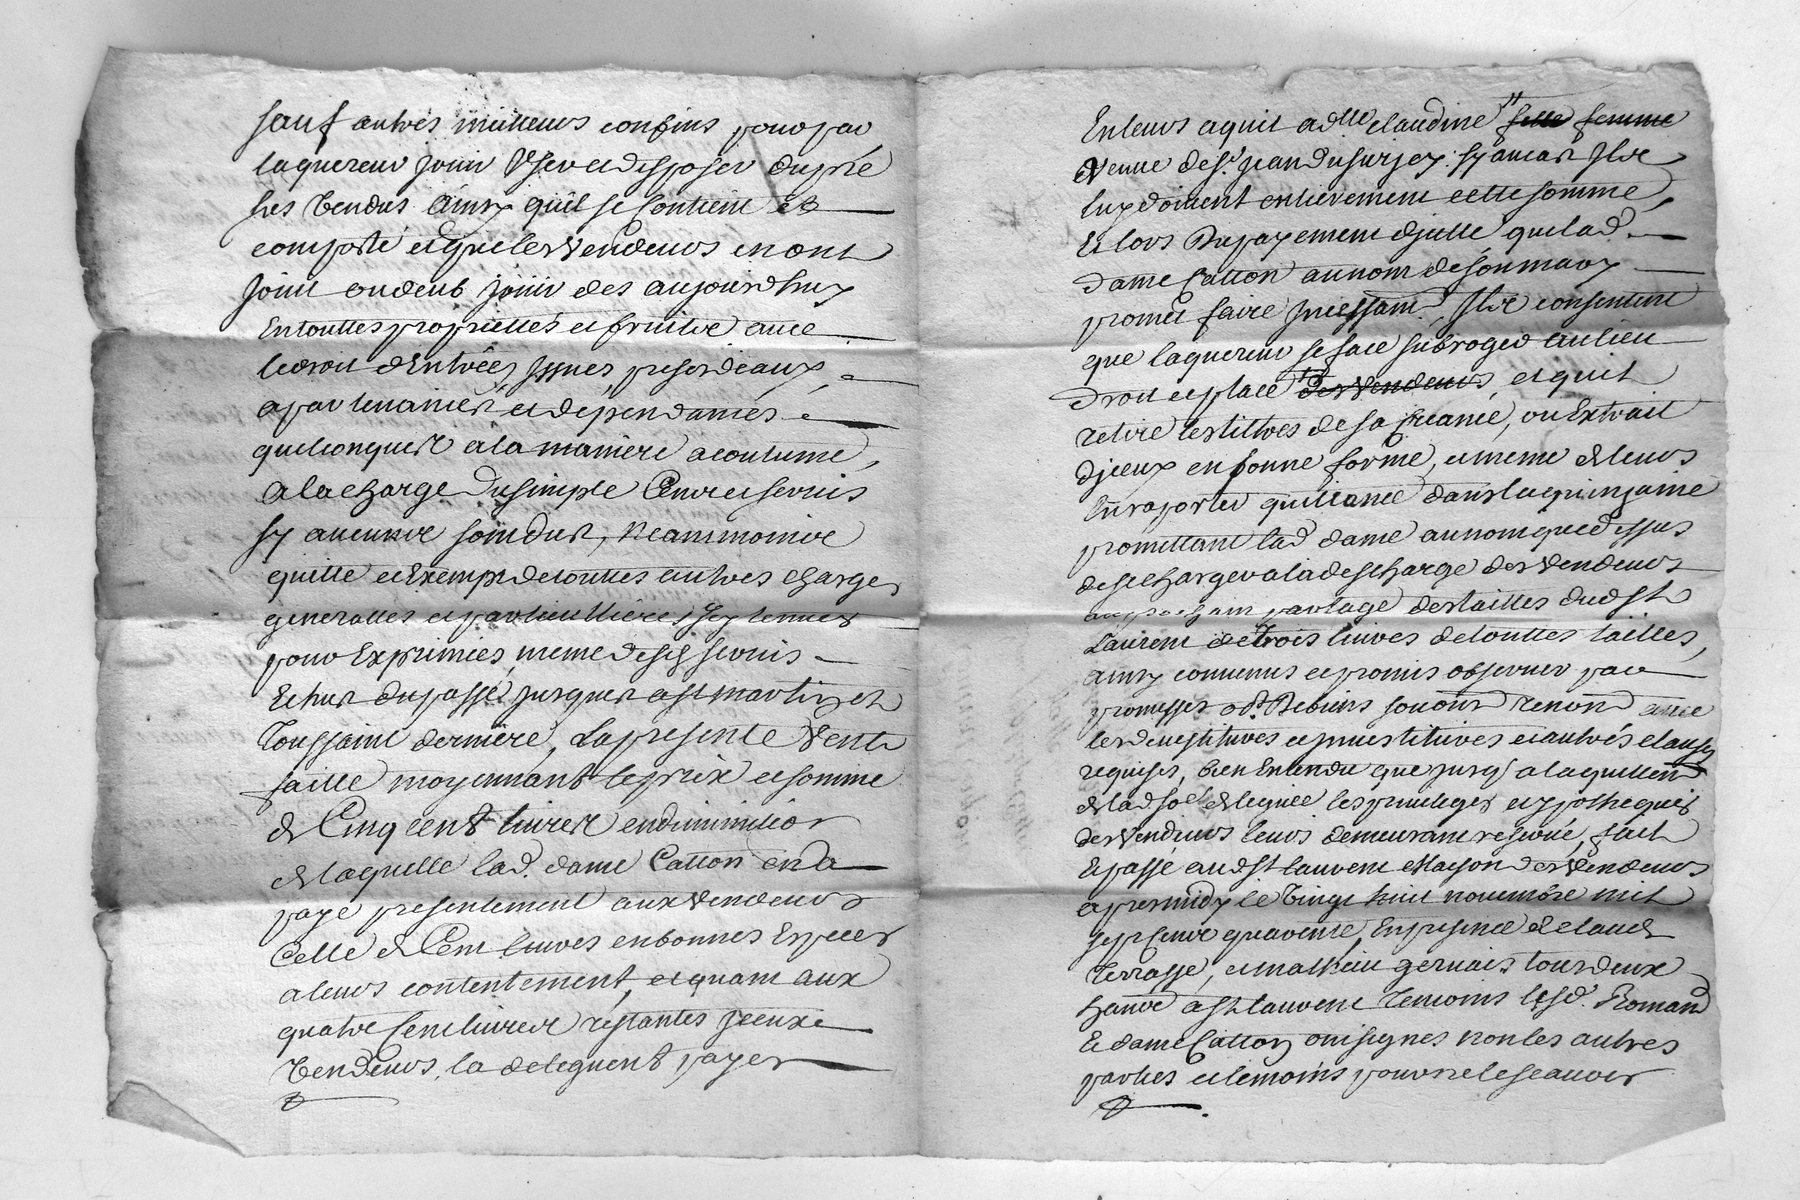 sauf autres meilleurs confins pour par
laquereur jouir User et disposer dupré
ses Vendus ainsy quil se Contient et
comporte, et que les vendeurs en ont
Joüit ou deub joüir des aujourdhuy
En touttes propriettés et fruitte avec
le droit d'Entrées, Issues, pasordeaux,
apartenances et dépendances
quelconques à la manière acoutumé,
a la charge du simple Cens et servis
sy aucuns soin dus, Neansmoins
quitte et Exempt de touttes autres charges
generalles et particullières Icy tennes
pour Exprimées, meme desd servis
Echus du passé, jusques a st martin et
Toussaint dernière, La presente Vente
faitte moyennant le prix et somme
de Cinq cent livres en diminution
de laquelle lad. dame Catton en a
payé presentement aux vendeurs
Celle de Cent livres en bonnes Especes
a leurs contentement, et quant aux
quatre Cent livres restantes Iceux
Vendeurs, la deleguent payer
En leurs aquit a dlle claudine fille femme
Veuve de sr. jean dusurjey sy ancar Ils
luy doivent entièrement cette somme,
Et lors du payement djcelle, que lad.
Dame Catton au nom de son mary
promet faire Incessamt., Ils consentent
que laquereur se face subroger au lieu
Droit et place des vendeurs, et quil
retire les tittres de sa Creance, ou Extrait
djceux en bonne forme, et meme de leurs
En raporter quittance dans la quinzaine
promettant lad dame au nom que dessus
de se charger a la descharge des vendeurs
au prochain partage des tailles dud st
Laurent de trois livres de touttes tailles,
ainsy convenus et promis observer par
promesses obd. Bebiens soûms Renons avec
les devestitures et investitures et autres clauses
requises, bien Entendu que jusq' a laquittent
de lad sole deleguée les privileges et ypotheques
des vendeurs leurs demeurant reservée, fait
Et passé aud st laurent Maison des vendeurs
apres midy le Vingt huit novembre mil
sept Cent quarente, En presence de claude
Terrasse, et mathieu gervais tous deux
habts a st laurent temoins lesd. Romand
Et dame Catton ont signes non les autres
parties et temoins pour ne le scavoir